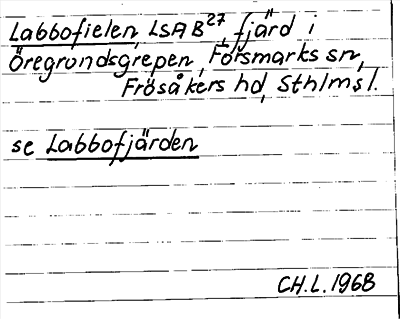 Labbofielen LSAB27, fjärd i
Öregrundsgrepen, Forsmarks sn,
Frösåkers hd, Sthlms l.
se Labbofjärden
CH.L. 1968